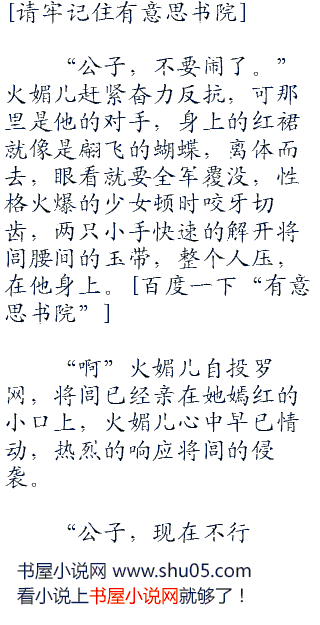 [请牢记住有意思书院]
“公子，不要闹了。”
火媚儿赶紧奋力反抗，可那
里是他的对手，身上的红裙
就像是翩飞的蝴蝶，离体而
去，眼看就要全军覆没，性
格火爆的少女顿时咬牙切
齿，两只小手快速的解开将
闾腰间的玉带，整个人压，
在他身上。[百度一下“有意
思书院”]
“啊”火媚儿自投罗
网，将闾已经亲在她嫣红的
小口上，火媚儿心中早已情
动，热烈的响应将闾的侵
袭。
“公子，现在不行
书屋小说网 www.shu05.com
看小说上书屋小说网就够了！